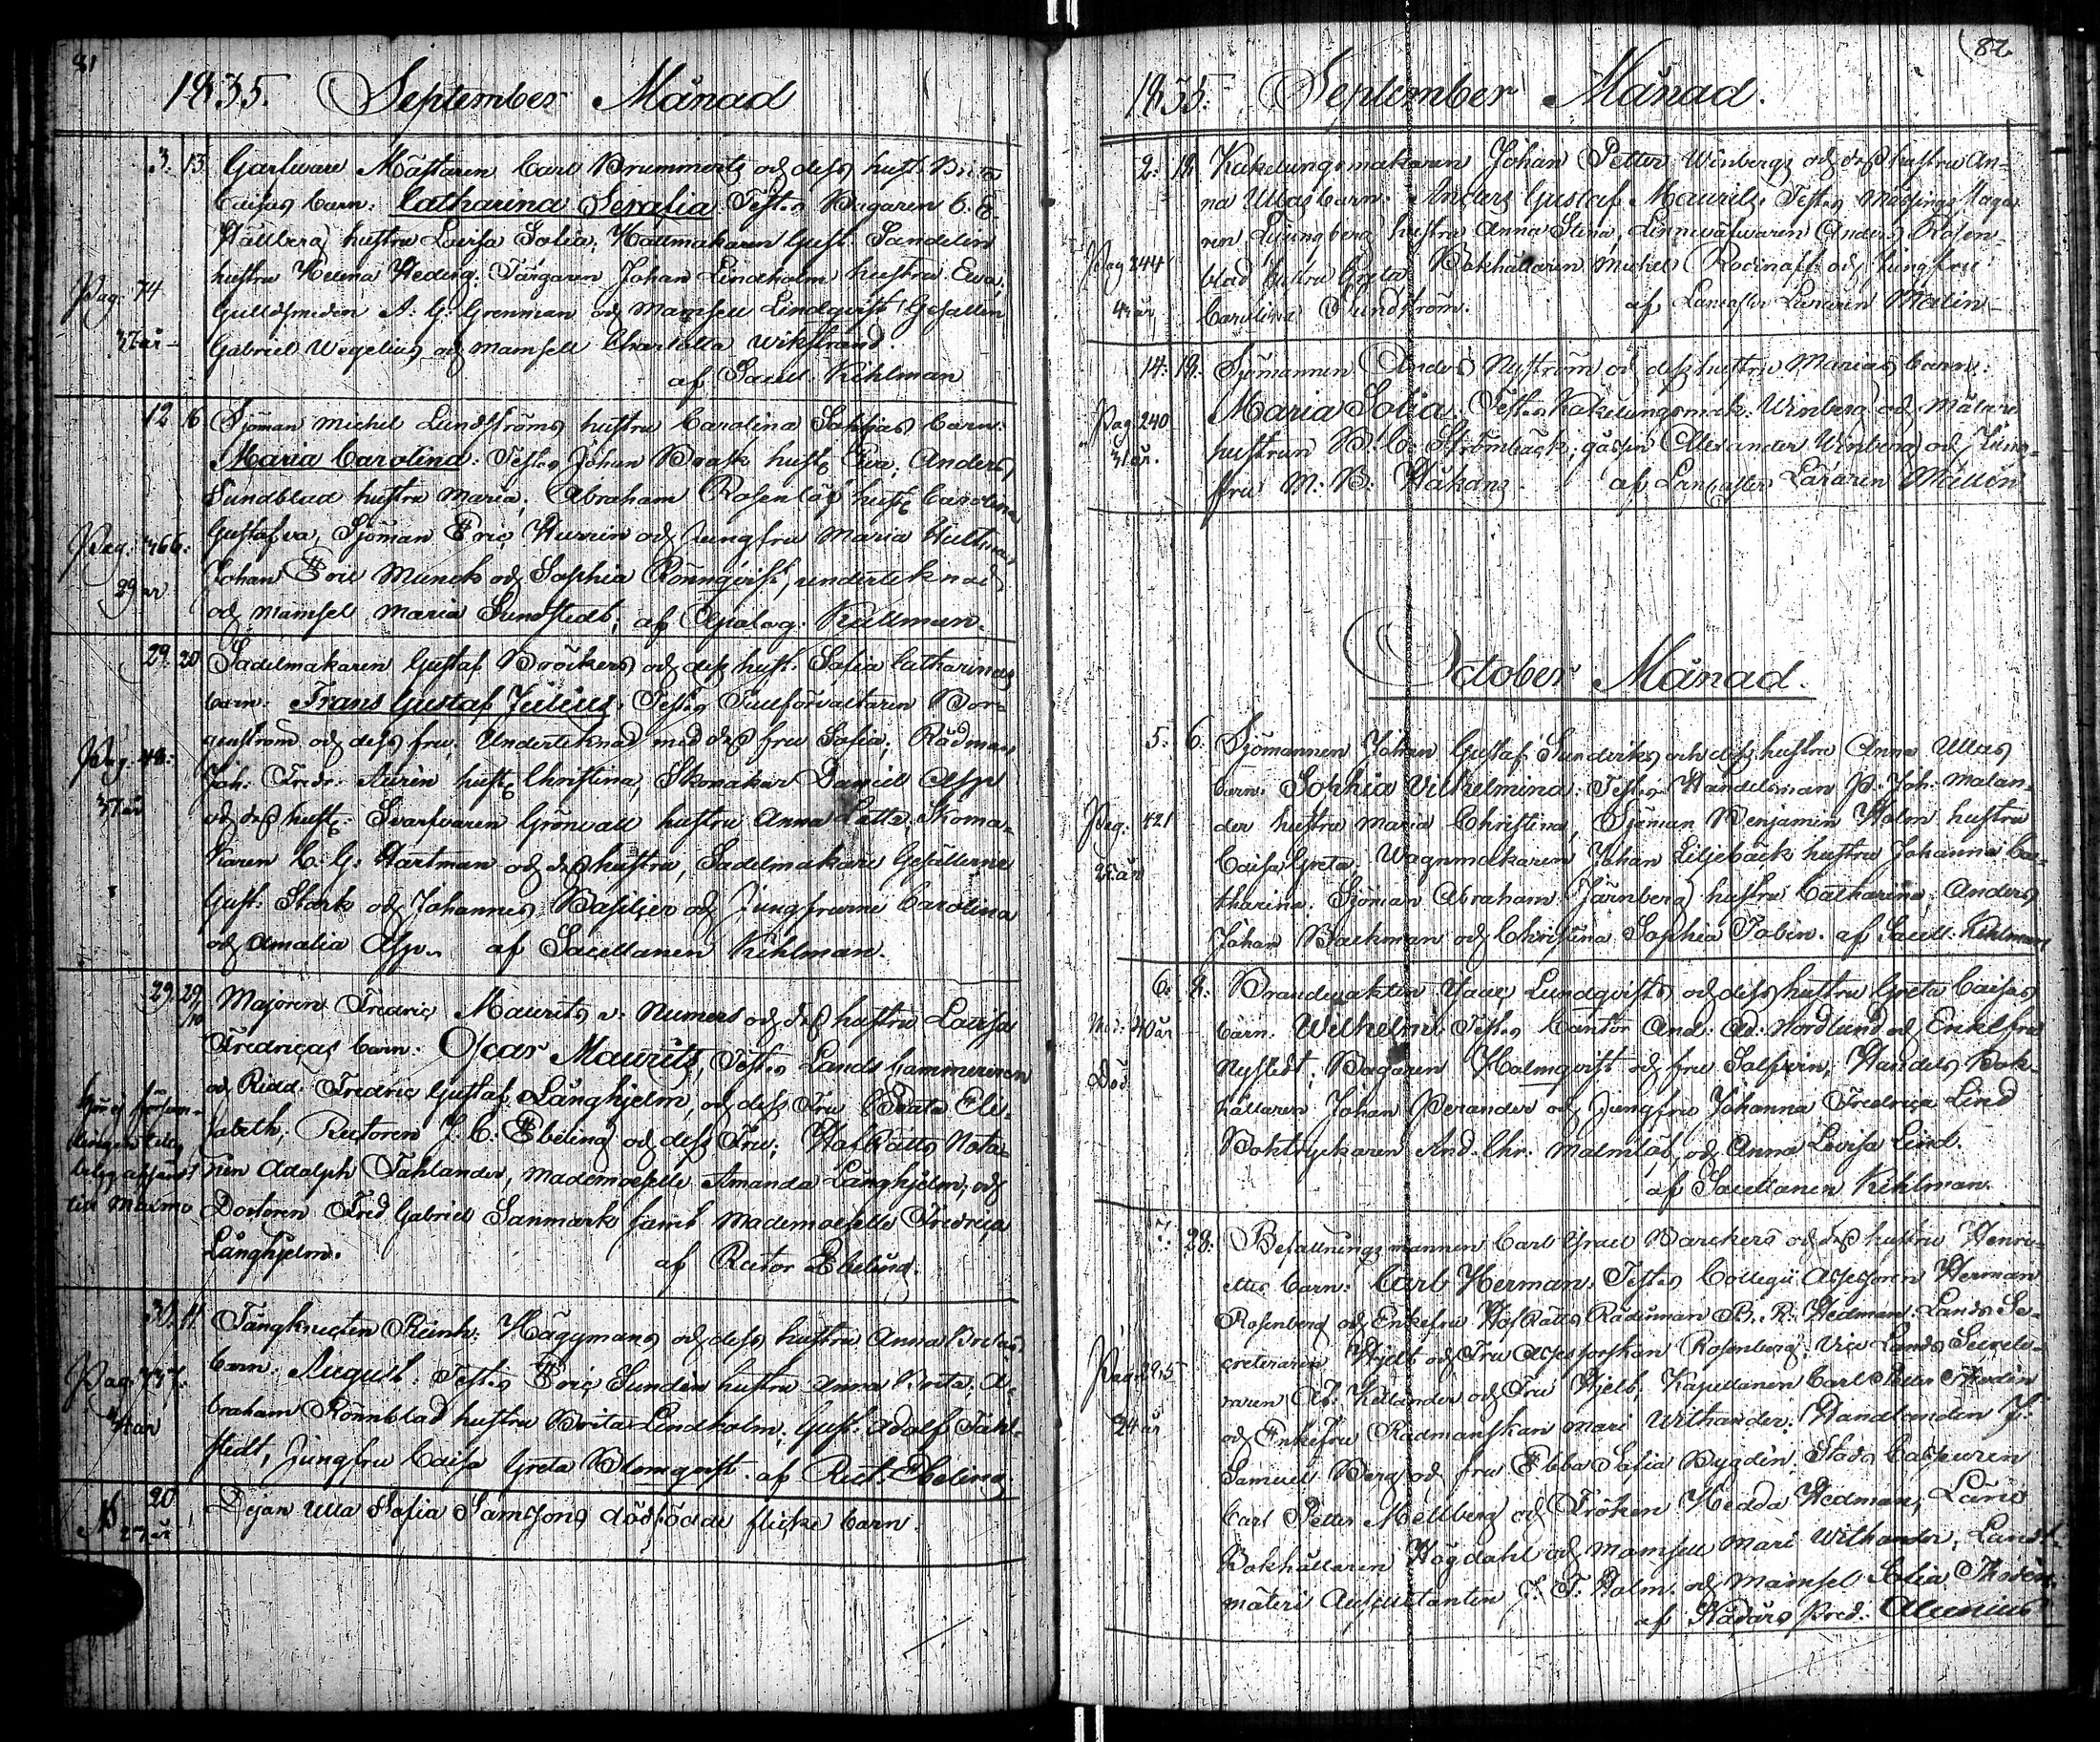 81
1835. September Månad
3. 13. Garfvare Mästaren Carl Brummertz och dess hust. Brita
Caisas barn: Catharina Serafia. Testes Bagaren C. E.
Hällberg hustru Lovisa Sofia; Hattmakaren Gust. Sandelin
hustru Helena Hedvig. Färgaren Johan Lindholm hustru Eva;
Pag: 74
Gulldsmeden A. G. Grenman och Mamsell Lindqvist Gesällen
37 år
Gabriel Wegelius och mamsell Charlotta Wikstrand.
af Sacell. Kihlman
12 16 Sjöman Michel Lundströms hustru Carolina Sophias barn:
Maria Carolina: Testes Johan Brask hust. Eva; Anders
Sundblad hustru Maria; Abraham Rosenlöf hust. Carolina
Pag: 366:
Gustafva, Sjöman Eric Hurrin och jungfru Maria
Johan Eric Munck och Sophia Rönnqvist, undertecknad
29 år
och mamsel Maria Sundstedt; af Apolog. Kullman.
29. 20 Sadelmakaren Gustaf Bröckers och dess hust. Sofia Catharinas
barn: Frans Gustaf Julius. Testes Tullförvaltaren Bor-
genström och dess fru; Undertecknad med dess fru Sofia; Rådman
Pag: 48:
Joh: Fredr: Aurén hust. Christina, Skomakar Daniel Asp
37 år
och dess hust. Svarfvaren Grönvall hustru Anna Lotta, Skoma-
karen C. G. Hartman och dess hustru, Sadelmakare Gesällerne
Gust: Stark och Johannes Basilier och Jungfrurne Carolina
och Amalia Asp. af Sacellanen Kihlman.
29. 29/10 Majoren Fredric Maurits v. Numers och dess hustru Lovisa
Fredricas barn: Oscar Maurits, Testes Lands Cammereraren
och Ridd. Fredric Gustaf Långhjelm, och dess Fru Beata Eli-
sabeth, Rectoren J. C. Ebeling och dess Fru; Hof Rätts Nota-
rien Adolph Fahlander, Mademoiselle Amanda Långhjelm, och
Doctoren Fred Gabriel Sanmark samt Mademoiselle Fredrica
Långhjelm.
af Rector Ebeling.
30. 11. Tångknecten Reinh: Häggmans och dess hustru Anna Britas
barn: August: Testes Eric Sundén hustru Anna Greta; A-
Pag. 737:
braham Rönnblad hustru Brita Lindholm; Gust: Adolf Fahl-
41 år
stedt, Jungfru Caisa Greta Blomqvist. af Rect. Ebeling.
20 Pijan Ulla Sofia Samsons dödfödde flicke barn.
27 år
82
1835. September Månad.
2. 18. Kakelungsmakaren Johan Petter Winbergs och dess hustru An-
na Ullas barn: Anders Gustaf Maurits. Testes Mässings Maga-
ren Ljungberg hustru Anna Stina, Linneväfvaren Anders Rosen-
Pag 244
blad hustru Greta. Bokhållaren Michel Rodinaff och jungfru
Carolina Sundström. af Lancaster Läraren Malin
14: 18. Sjömannen Anders Nyström och dess hustru Marias barn:
Maria Sofia; Testes Kakelungsmak. Winberg och Målare
Pag 240
hustrun B. C. Strömbäck; gåssen Alexander Winberg och Jung-
31 år.
fru M. B. Håkans. af Lancaster Läraren Malin
October Månad.
5. 6. Sjömannen Johan Gustaf Sunderiks och dess hustru Anna Ullas
barn: Sophia Vilhelmina: Testes Handelsman P. Joh. Malan-
Pag: 421
der hustru Maria Christina, Sjöman Benjamin Holm hustru
Caisa Greta, Wagnmakaren Johan Liljebäck hustru Johanna Ca-
tharina. Sjöman Abraham Järnberg hustru Catharina; Anders
Johan Backman och Christina Sophia Tobin. af Sacell. Kihlman
6. 8: Brandvakten Isaac Lundqvists och dess hustru Greta Caisas
40 år
barn: Wilhelm: Testes Cantor And: Ad: Nordlund och Enkefru
Död
Nystedt; Bagaren Holmqvist och fru Salpvin; Handels Bok-
hållaren Johan Perander och Jungfru Johanna Fredrica Lind
Boktryckaren And. Chr. Malmlöf, och Anna Lovisa Lind.
af Sacellanen Kihlman.
7. 28: Befallningsmannen Carl Israel Barckers och dess hustru Henri-
ettes barn: Carl Herman. Testes Collegii Assessoren Herman
Rosenberg och Enkefru HofRätts Rådinnan B. R. Hedman. Lands Se-
creteraren Hjelt och Fru Assessorskan Rosenberg. Vice Lands Secrete-
Pag. 295
raren Ad. Kellander och Fru Hjelt; Kapellanen Carl Petter Thodén
34 år
och Enkefru Rådmanskan Mari Withander. Handlanden J:
Samuel Berg och fru Ebba Sofia Bygdén, Stads Casseuren
Carl Petter Mellberg och Fröken Hedda Hedman, Läns
Bokhållaren Högdahl och Mamsell Mari Withander, Landt-
mäteri Auscultanten J. F. Holm och Mamsel Sofia Thodén.
af Rådårs Pred: Alcenius